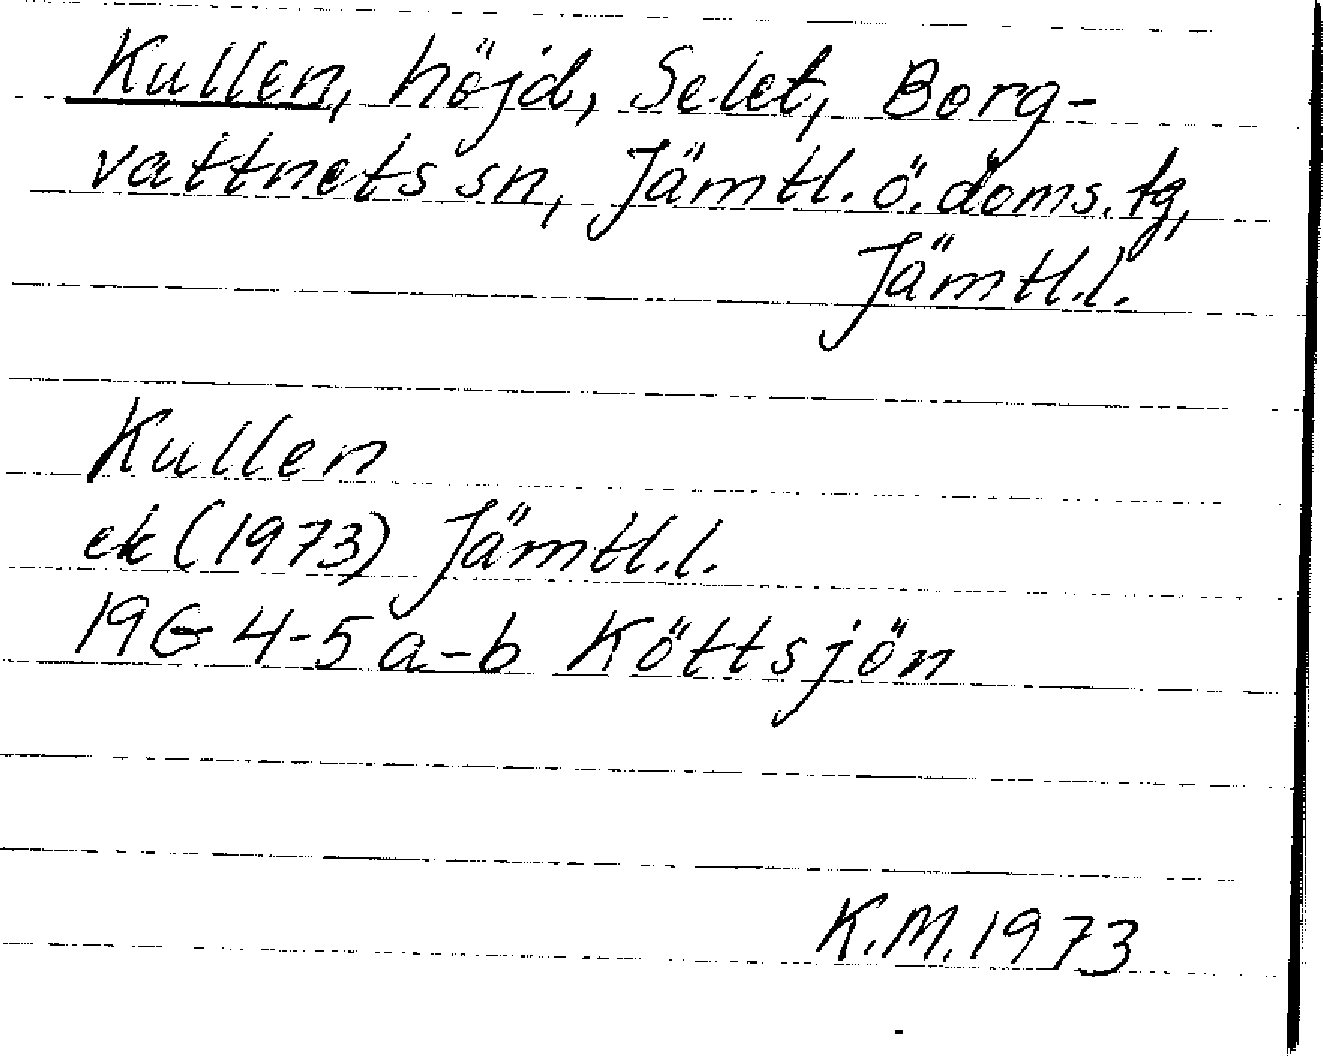 Kullen, höjd, Selet, Borg-
vattnets sn, Jämtl. ö. doms. tg,
Jämtl.l.
Kullen
ek (1973) Jämtl.l.
19G 4-5 a-b Köttsjön
K.M. 1973